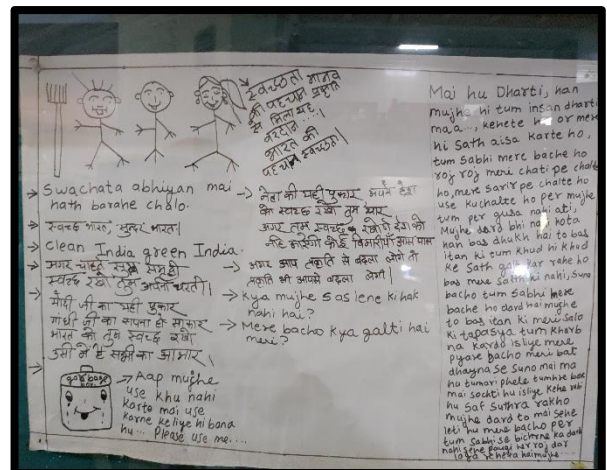 स्वच्छता मानव
की पहचान प्रकृति
से मिला यह
वरदान....।
भारत की
पहचान स्वच्छता।
→ Swachata abhiyan mai
hath barahe chalo.
→ स्वच्छ भारत, सुन्दर भारत।
→ Clean India green India.
→ अगर चाहते
स्वच्छ रखो तुम अपनी धरती।
→ मोदी जी का यही पुकार
गांधी जी का सपना हो साकार
भारत को तुम स्वच्छ रखो
उसी में है सभी का आभार
→ नेता की यही पुकार अपने देश
को स्वच्छ रखो तुम यार
अगर तुम स्वच्छ रखोगे देश को
नहीं आयेगी कोई बिमारीयाँ आस पास
→ अगर आप प्रकृति से बदला लोगे तो
प्रकृति भी आपसे बदला लेगी।
→ Kya mujhe sas lene ki hak
nahi hai?
→ Mere bacho kya galti hai
meri?
garbage
box
→ Aap mujhe
use khu nahi
karte mai use
karne keliye hi bana
hu... Please use me....
Mai hu Dharti, han
mujhe hi tum insan dharti
maa..., kehete ho or mere
hi sath aisa karte ho,
tum sabhi mere bache ho
roj roj meri chati pe chalte
ho, mere sarir pe chalte ho
use kuchalte ho per mujhe
tum per gusa nahi ati,
Mujhe dard bhi nahi hota
han bas dhukh hai to bas
itan ki tum khud hi khud
ke sath galt kar rahe ho
bas mere sath hi nahi, suno
bacho tum sabhi mere
bache ho dard hai mujhe
to bas itan ki meri salo
ki tapasya tum kharb
na kardo isliye mere
pyare bacho meri bat
dhayna se suno mai ma
hu tumari phele tumhre bare
mai sochti hu isliye kehe rahi
hu saf suthra rakho
mujhe dard to mai sehe
leti hu mere bacho per
tum sabhi se bichrne ka dard
nahi sehe paugi